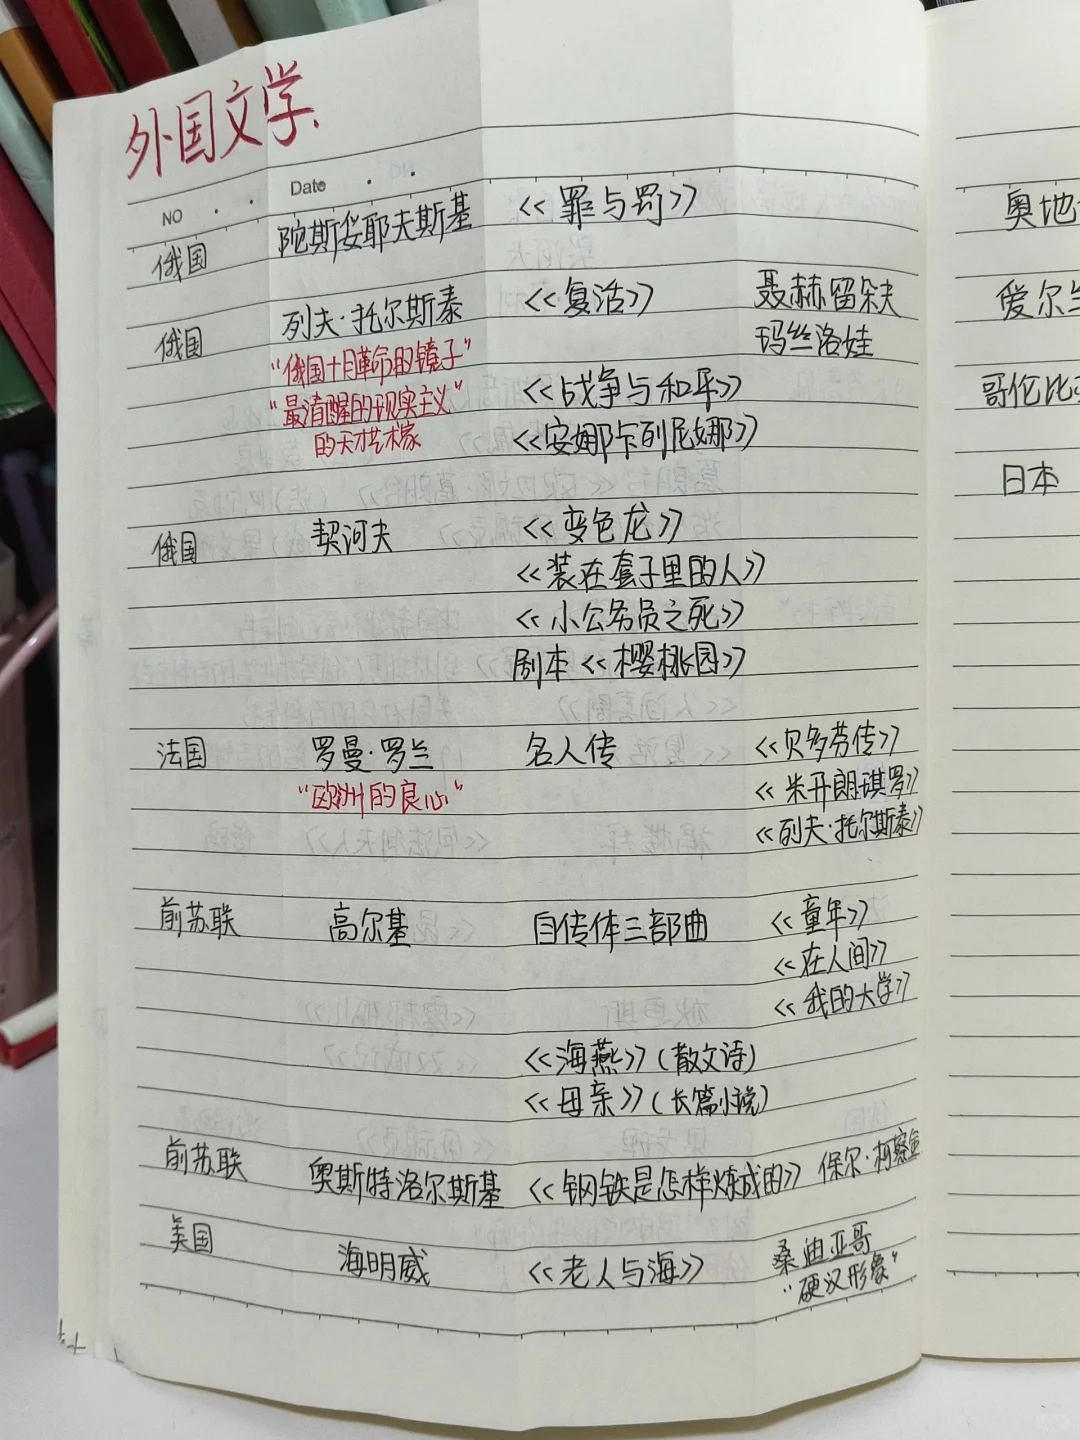 外国文学.
NO . .
Date . .
俄国 陀斯妥耶夫斯基 《罪与罚》
俄国 列夫·托尔斯泰 《复活》 聂赫留朵夫
玛丝洛娃
"俄国十月革命的镜子"
"最清醒的现实主义" 《战争与和平》
的天才艺术家 《安娜卡列尼娜》
俄国 契诃夫 《变色龙》
《装在套子里的人》
《小公务员之死》
剧本《樱桃园》
法国 罗曼·罗兰 名人传 《贝多芬传》
"欧洲的良心" 《米开朗琪罗》
《列夫·托尔斯泰》
前苏联 高尔基 自传体三部曲 《童年》
《在人间》
《我的大学》
《海燕》(散文诗)
《母亲》(长篇小说)
前苏联 奥斯特洛尔斯基 《钢铁是怎样炼成的》 保尔·柯察金
美国 海明威 《老人与海》 桑迪亚哥
"硬汉形象"
奥地
爱尔兰
哥伦比亚
日本